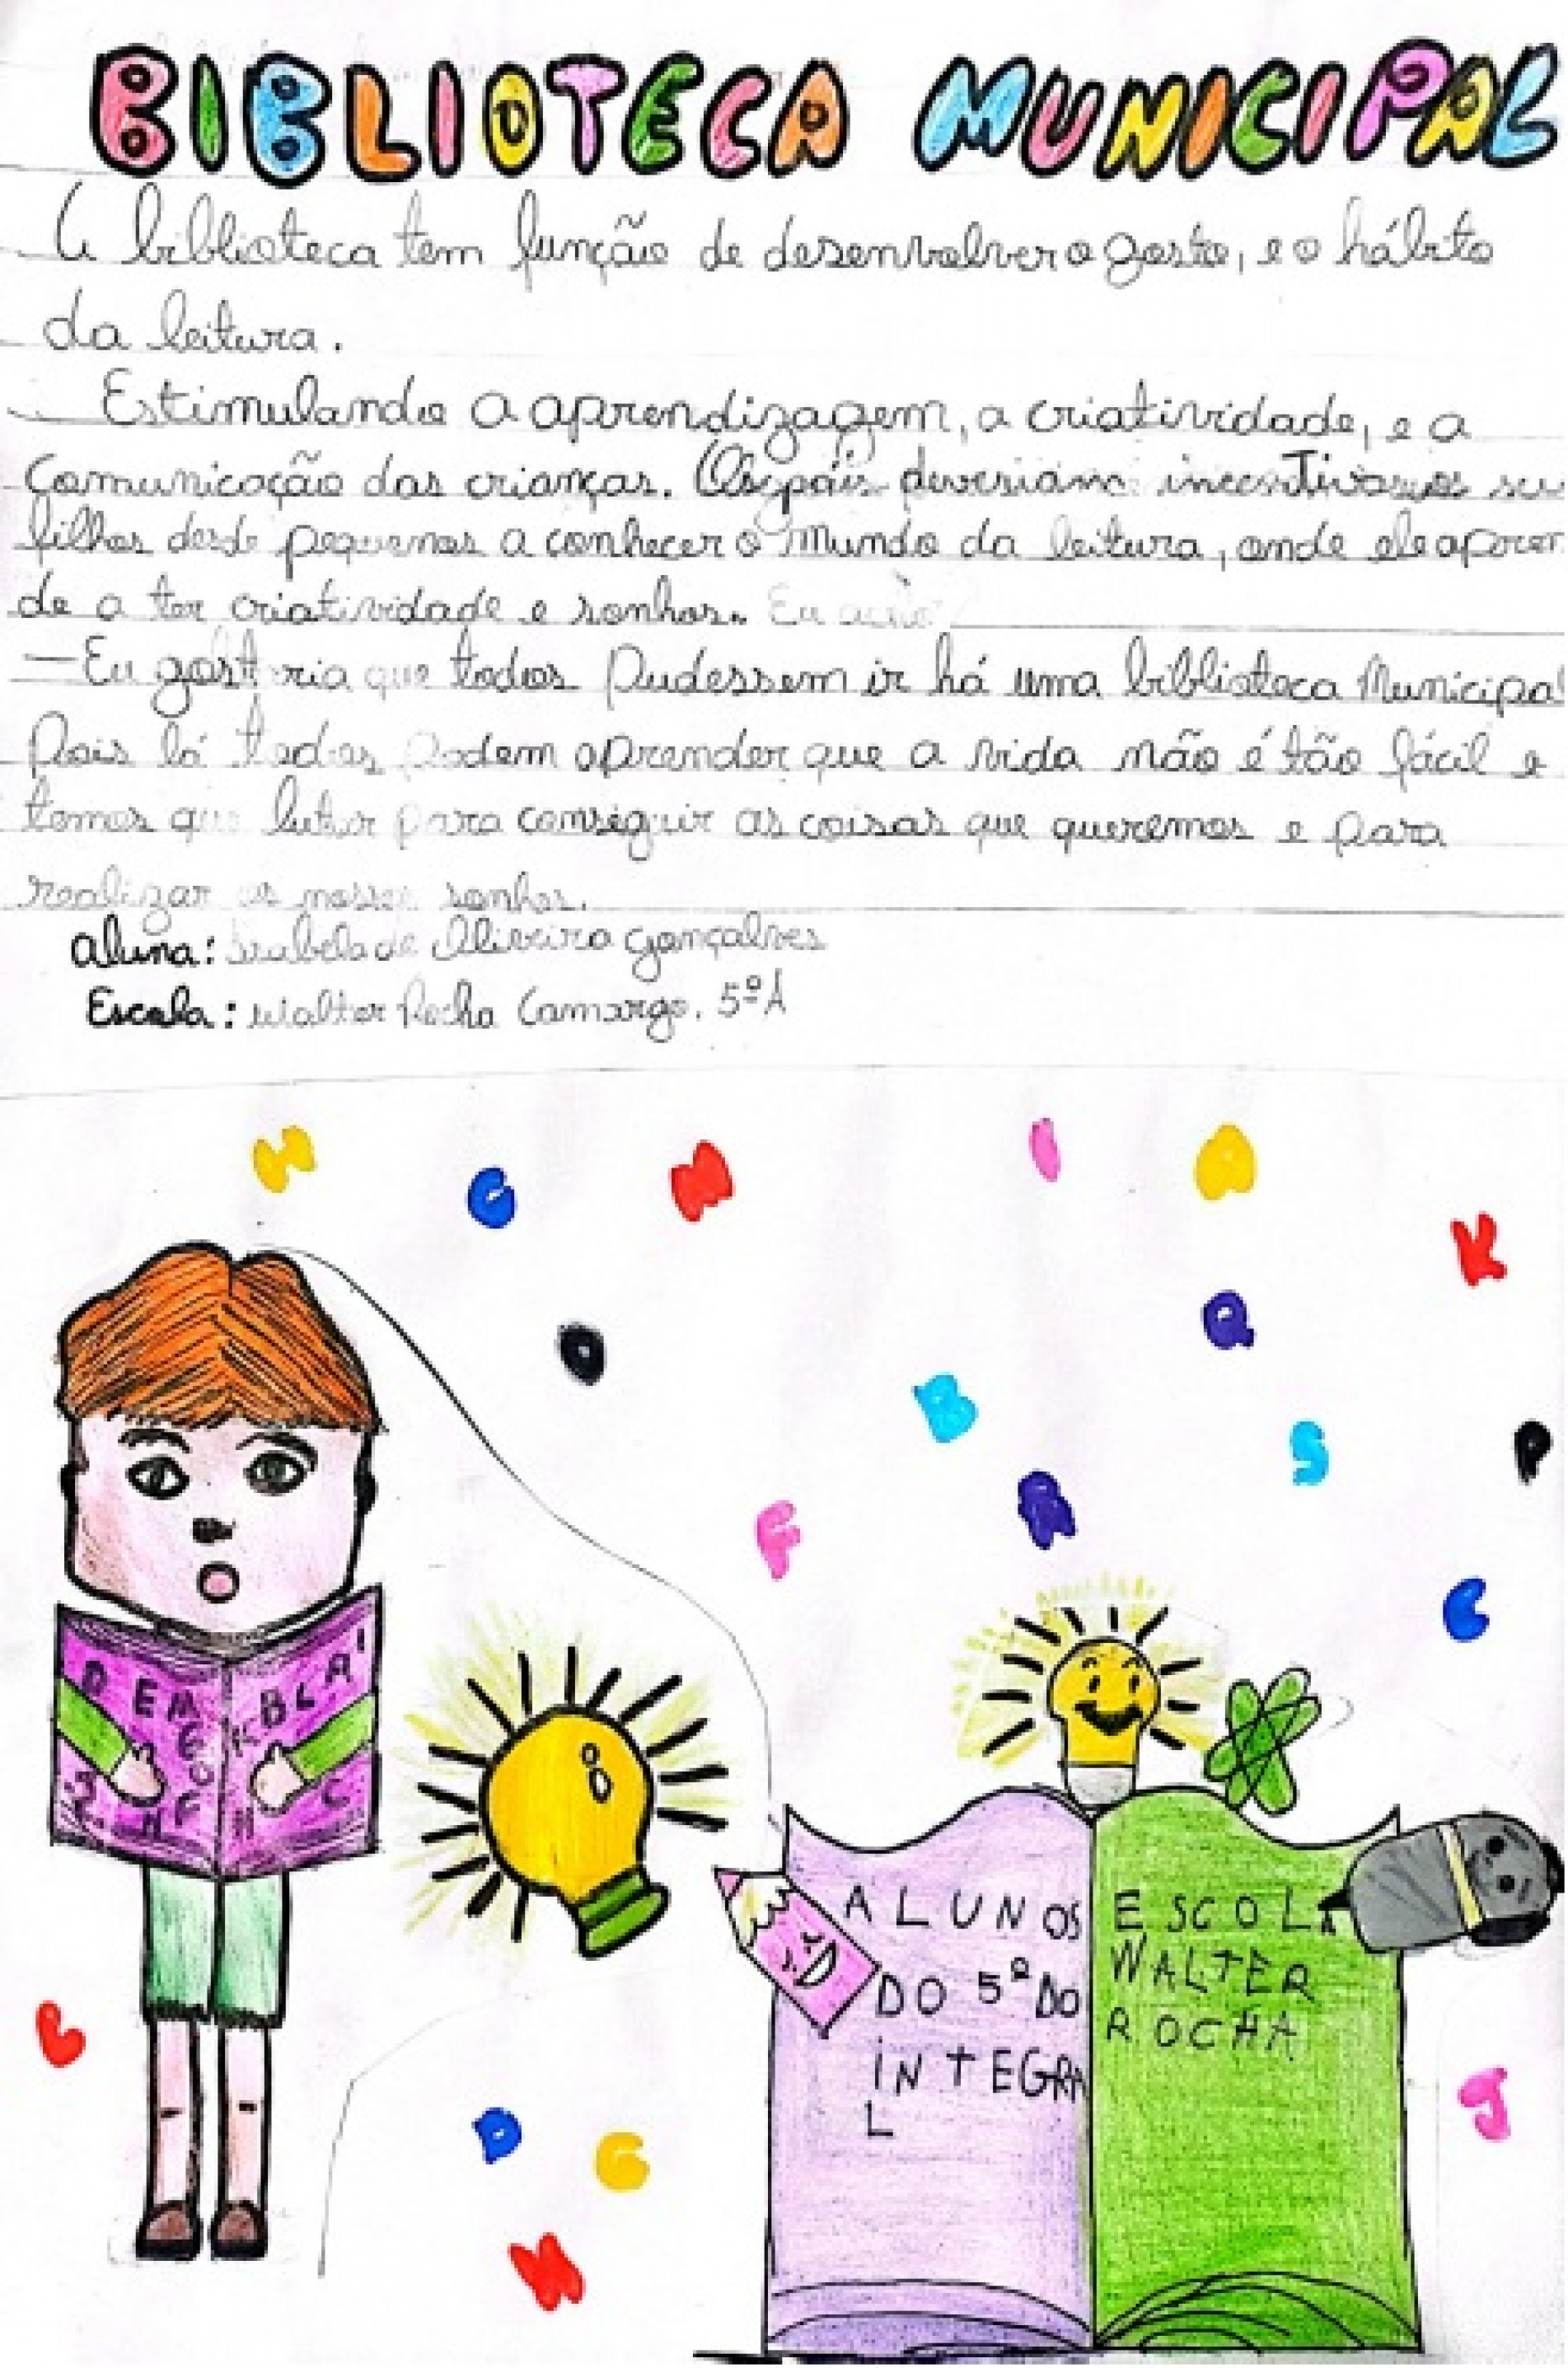 BIBLIOTECA MUNICIPAL
A biblioteca tem função de desenvolver o gosto, e o hábito
da leitura.
Estimulando a aprendizagem, a criatividade, e a
comunicação das crianças. Os pais deveriam incentivar os seu
filhos desde pequenos a conhecer o mundo da leitura, onde ele apren
de a ter criatividade e sonhos. Eu
- Eu gostaria que todos pudessem ir há uma biblioteca Municipal
Pois lá todos podem aprender que a vida não é tão fácil e
temos que lutar para conseguir as coisas que queremos e para
realizar os nossos sonhos.
aluna: Isabela de Oliveira Gonçalves
Escola: Walter Rocha Camargo. 5º A
H G N I A
K
Q
O
B
S P
F R
C
D E M
B L A
ALUNOS
DO 5º DO
INTEGRA
L
ESCOLA
WALTER
ROCHA
L
J
D G
N